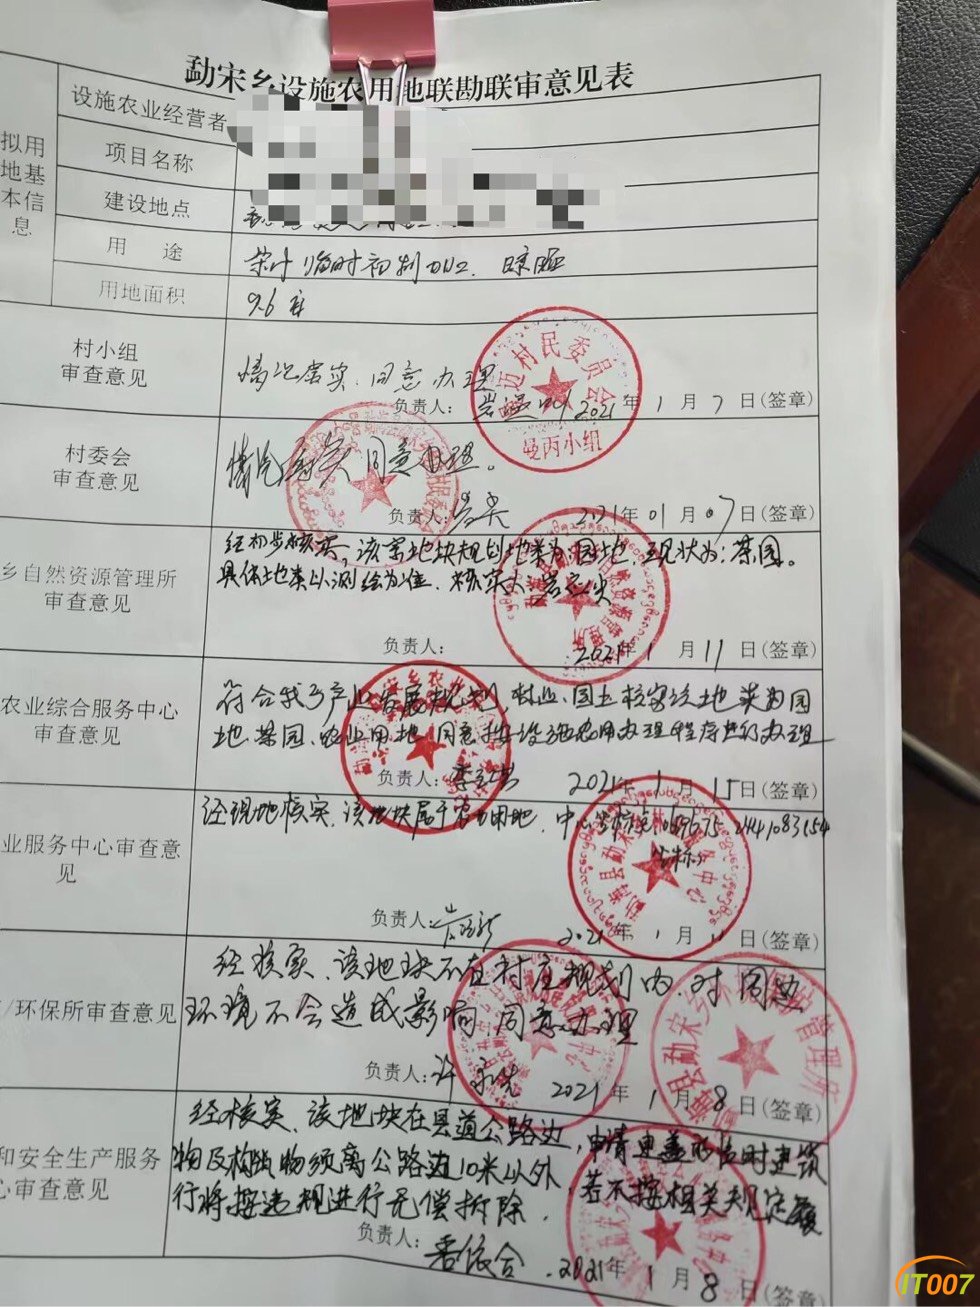 勐宋乡设施农用地联勘联审意见表
拟用地基本信息
设施农业经营者
项目名称
建设地点
用 途
茶叶临时初制加工、晾晒
用地面积
9.6亩
村小组
审查意见
情况属实、同意办理
负责人:
2021年1月7日(签章)
迈村民委员会
曼丙小组
村委会
审查意见
情况属实 同意办理。
负责人:
2021年01月07日(签章)
乡自然资源管理所
审查意见
经初步核实,该宗地块规划地类为:园地,现状为:茶园。
具体地类以测绘为准.核实人:
负责人:
2021年1月11日(签章)
农业综合服务中心
审查意见
符合我乡产业发展规划,林业、国土核实该地类为园
地、茶园、农业用地,同意按设施农用办理程序进行办理
负责人:
2021年1月15日(签章)
业服务中心审查意
见
经现地核实,该地块属于
负责人:
2021年1月11日(签章)
/环保所审查意见
经核实、该地块不在村庄规划内,对周边
环境不会造成影响,同意办理
负责人:许
2021年1月8日(签章)
和安全生产服务
心审查意见
经核实、该地块在县道公路边,申请
物及构筑物须离公路边10米以外,若不按相关规定履
行将按违规进行无偿拆除.
负责人:
2021年1月8日(签章)
IT007